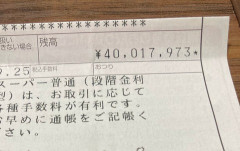 ***********************
扱い
きない場合
残高
¥40,017,973*
9.25
税込手数料
おつり
スーパー普通(段階金利
型)は、お取引に応じて
各種手数料が有利です。
お早めに通帳をご記帳く
ださい。